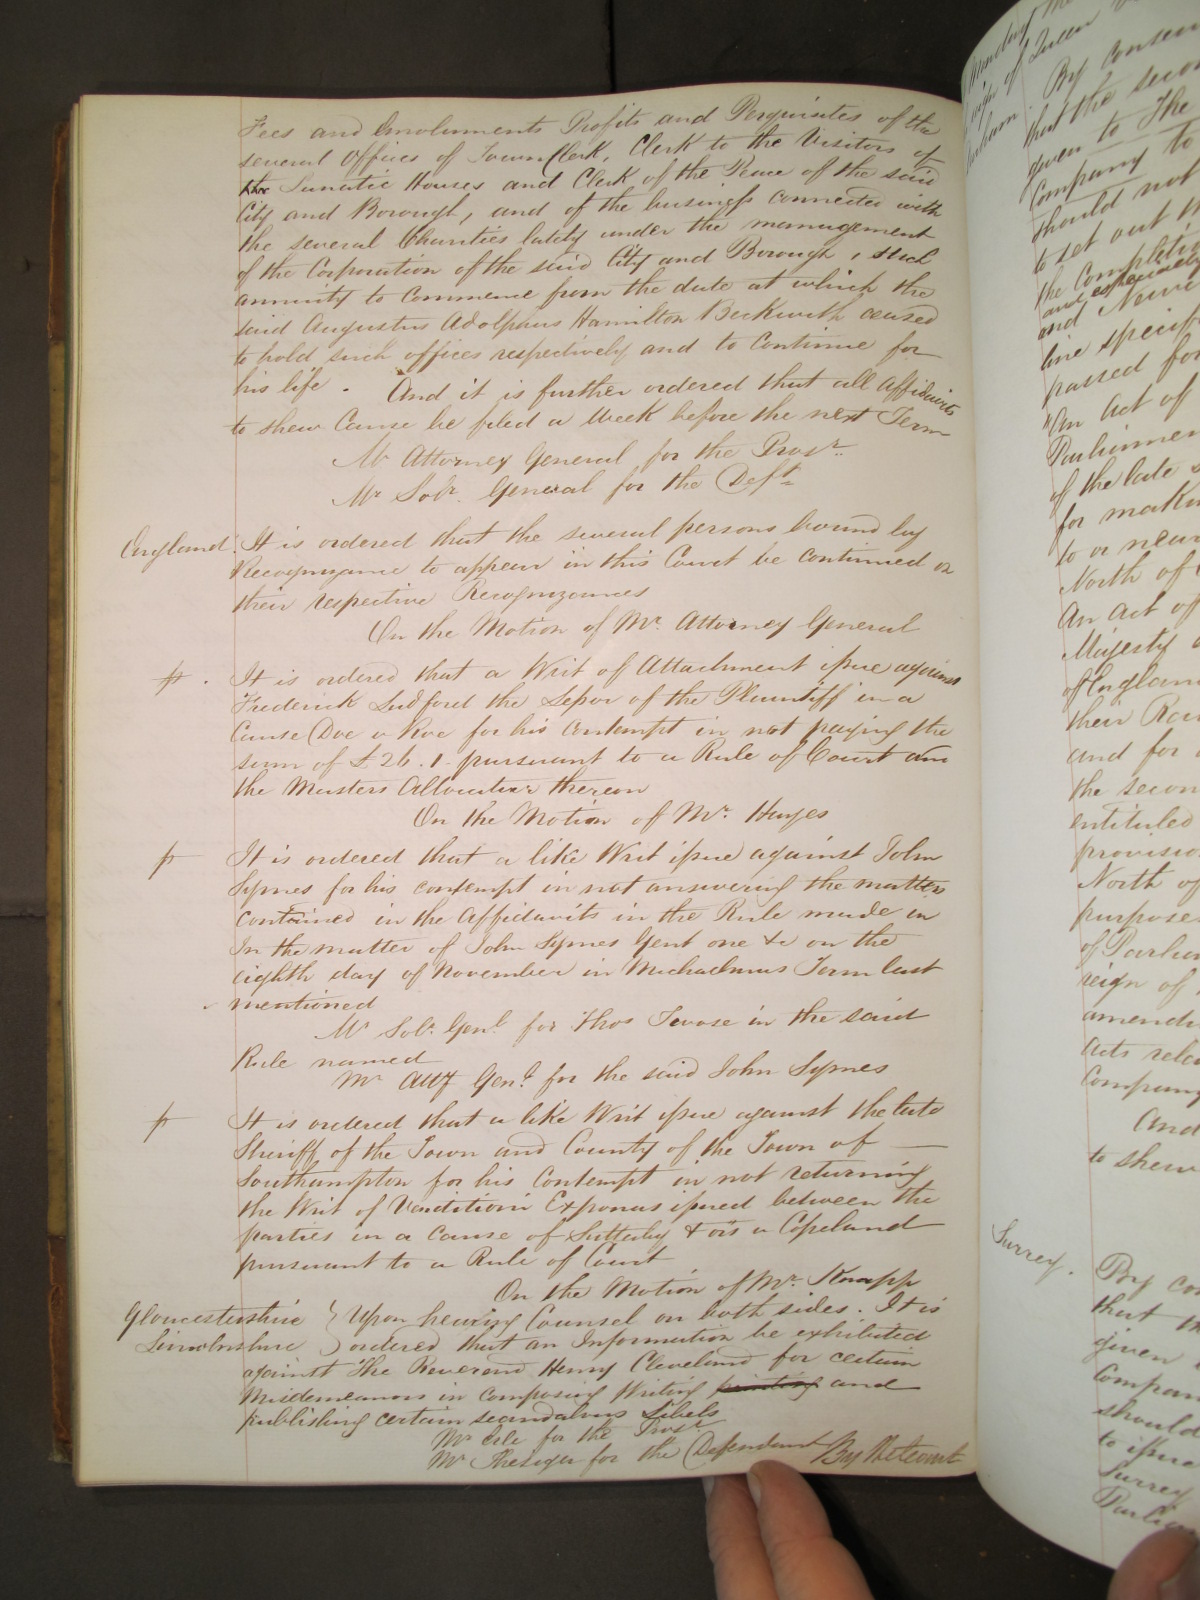 Fees and Emoluments Profits and Perquisites of the
several Offices of Town Clerk, Clerk to the Visitors of
Lunatic Houses and Clerk of the Peace of the said
City and Borough, and of the business connected with
the several Charities lately under the management
of the Corporation of the said City and Borough, such
annuity to commence from the date at which the
said Augustus Adolphus Hamilton Beckwith ceased
to hold such offices respectively and to continue for
his life. And it is further ordered that all Affidavits
to shew Cause be filed a Week before the next Term
Mr Attorney General for the Prosr.
Mr Solr. General for the Deft
England It is ordered that the several persons bound by
Recognizance to appear in this Court be continued on
their respective Recognizances
On the Motion of Mr. Attorney General
It is ordered that a Writ of Attachment issue against
Frederick Ludford the Lessor of the Plaintiff in a
Cause Doe v Roe for his contempt in not paying the
sum of £26.1. pursuant to a Rule of Court and
the Masters Allocatur thereon
On the Motion of Mr. Hayes
It is ordered that a like Writ issue against John
Symes for his contempt in not answering the matters
contained in the Affidavits in the Rule made in
In the matter of John Symes Gent one &c on the
eighth day of November in Michaelmas Term last
mentioned
Mr Solr. Genl. for Thos Tevose in the said
Rule named
Mr Atty Genl. for the said John Symes
It is ordered that a like Writ issue against the late
Sheriff of the Town and County of the Town of
Southampton for his Contempt in not returning
the Writ of Venditioni Exponas issued between the
parties in a Cause of Sutterby & ors v Copeland
pursuant to a Rule of Court
On the Motion of Mr. Knapp
Gloucestershire } Upon hearing Counsel on both sides. It is
Lincolnshire } ordered that an Information be exhibited
against The Reverend Henry Cleveland for certain
Misdemeanors in composing Writing printing and
publishing certain scandalous Libels
Mr Erle for the Prosr.
Mr Thesiger for the Defendant By the Court
By consen
that the secon
given to The
Company to
should not
to set out th
the Completi
and especially
and Newc
line specif
passed for
"An Act of
Parliamen
of the late
for makin
to or near
North of
An Act of
Majesty
of England
their Rai
and for
the secon
entituled
provisio
North of
purpose
of Parliam
reign of
amendi
Acts rela
Company
And
to shew
Surrey. By con
that th
given
Compan
should
to issue
Surrey
Parliam